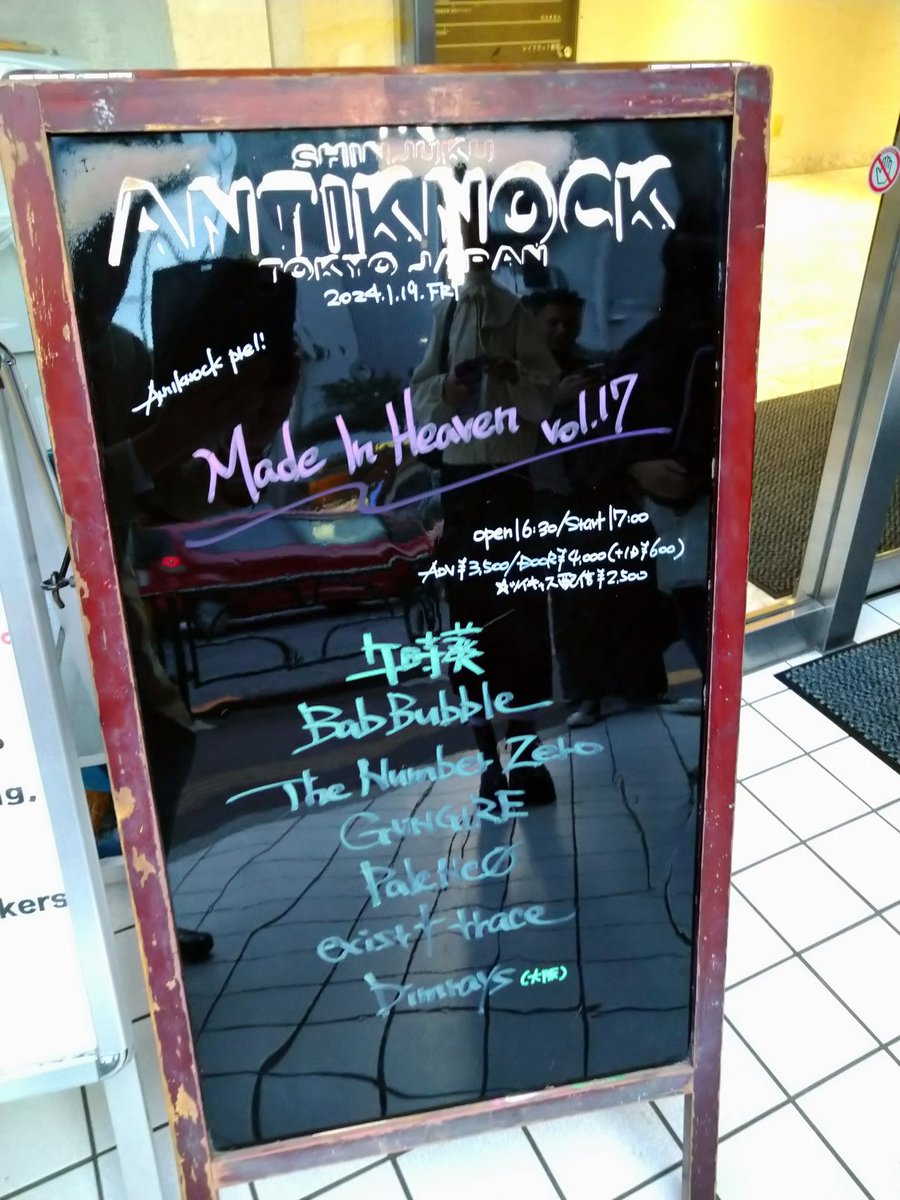 SHINJUKU
ANTIKNOCK
TOKYO JAPAN
2024.1.19.FRI
Antiknock pre!!
Made In Heaven vol.17
open16:30/Start17:00
ADV¥3,500/DOOR¥4,000(+1D¥600)
☆ツイキャス配信¥2,500
午時葵
BabBubble
The Number Zero
GUNGIRE
PaletteØ
exist†trace
Dimrays(大阪)
g,
kers